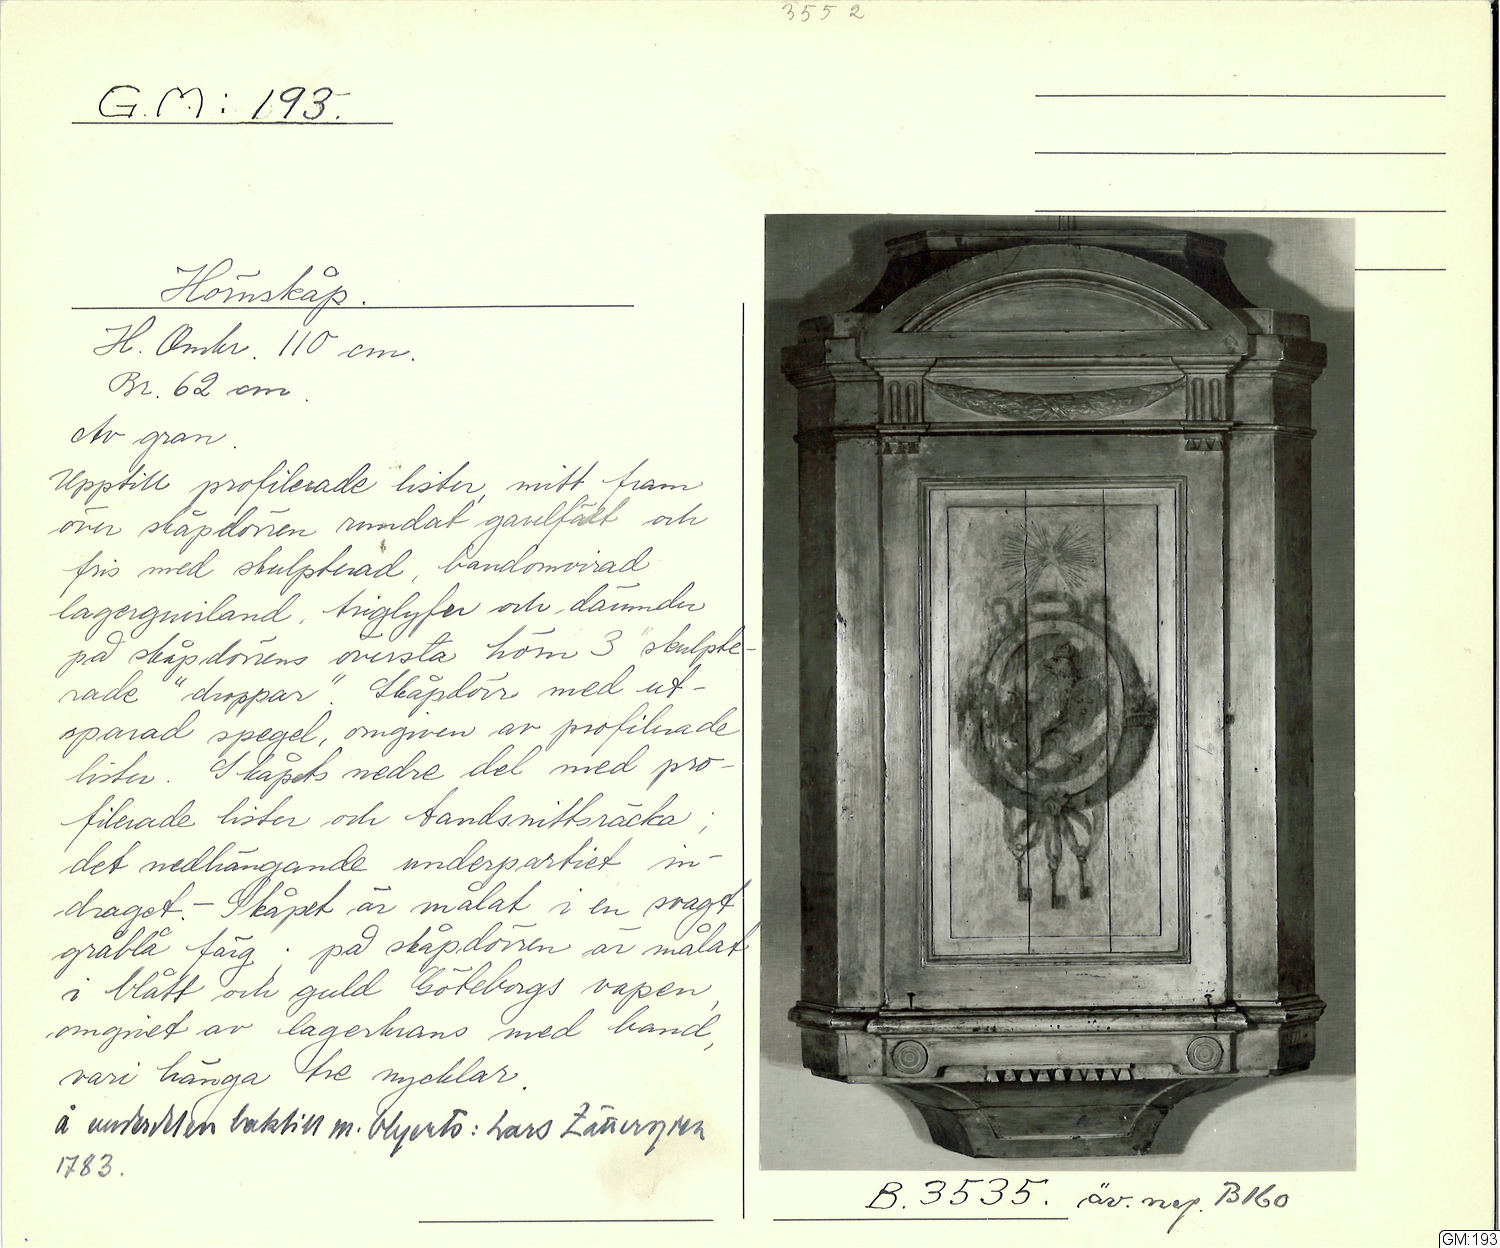 3552
G.M: 193.
Hörnskåp.
H. Omkr. 110 cm.
Br. 62 cm.
Av gran.
Upptill profilerade lister, mitt fram
över skåpdörren rundat gavelfält och
fris med skulpterad, bandomvirad
lagerguirland, triglyfer och därunder
på skåpdörrens översta hörn 3 skulpte-
rade "droppar". Skåpdörr med ut-
sparad spegel, omgiven av profilerade
lister. Skåpets nedre del med pro-
filerade lister och tandsnittsräcka;
det nedhängande underpartiet in-
draget. - Skåpet är målat i en svagt
gråblå färg; på skåpdörren är målat
i blått och guld Göteborgs vapen,
omgivet av lagerkrans med band,
vari hänga tre nycklar.
å underdelen baktill m. blyerts: Lars
1783.
B. 3535. äv. neg. B160
GM:193